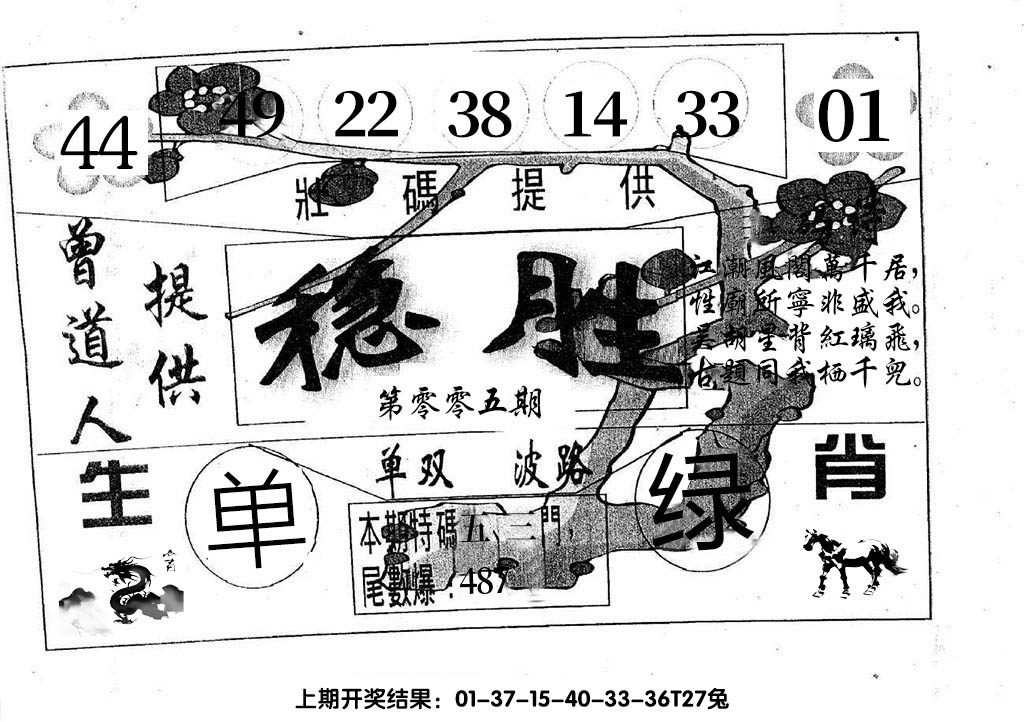 44 49 22 38 14 33 01
壯碼提供
曾道人
提供
稳胜
第零零五期
江潮風閣萬千居，
性廟所寧非盛我。
吳胡里背紅璃飛，
古題同我栖千兜。
单双 波路
生肖
单
绿
本期特碼五、三門，
尾數爆：487
上期开奖结果：01-37-15-40-33-36T27兔